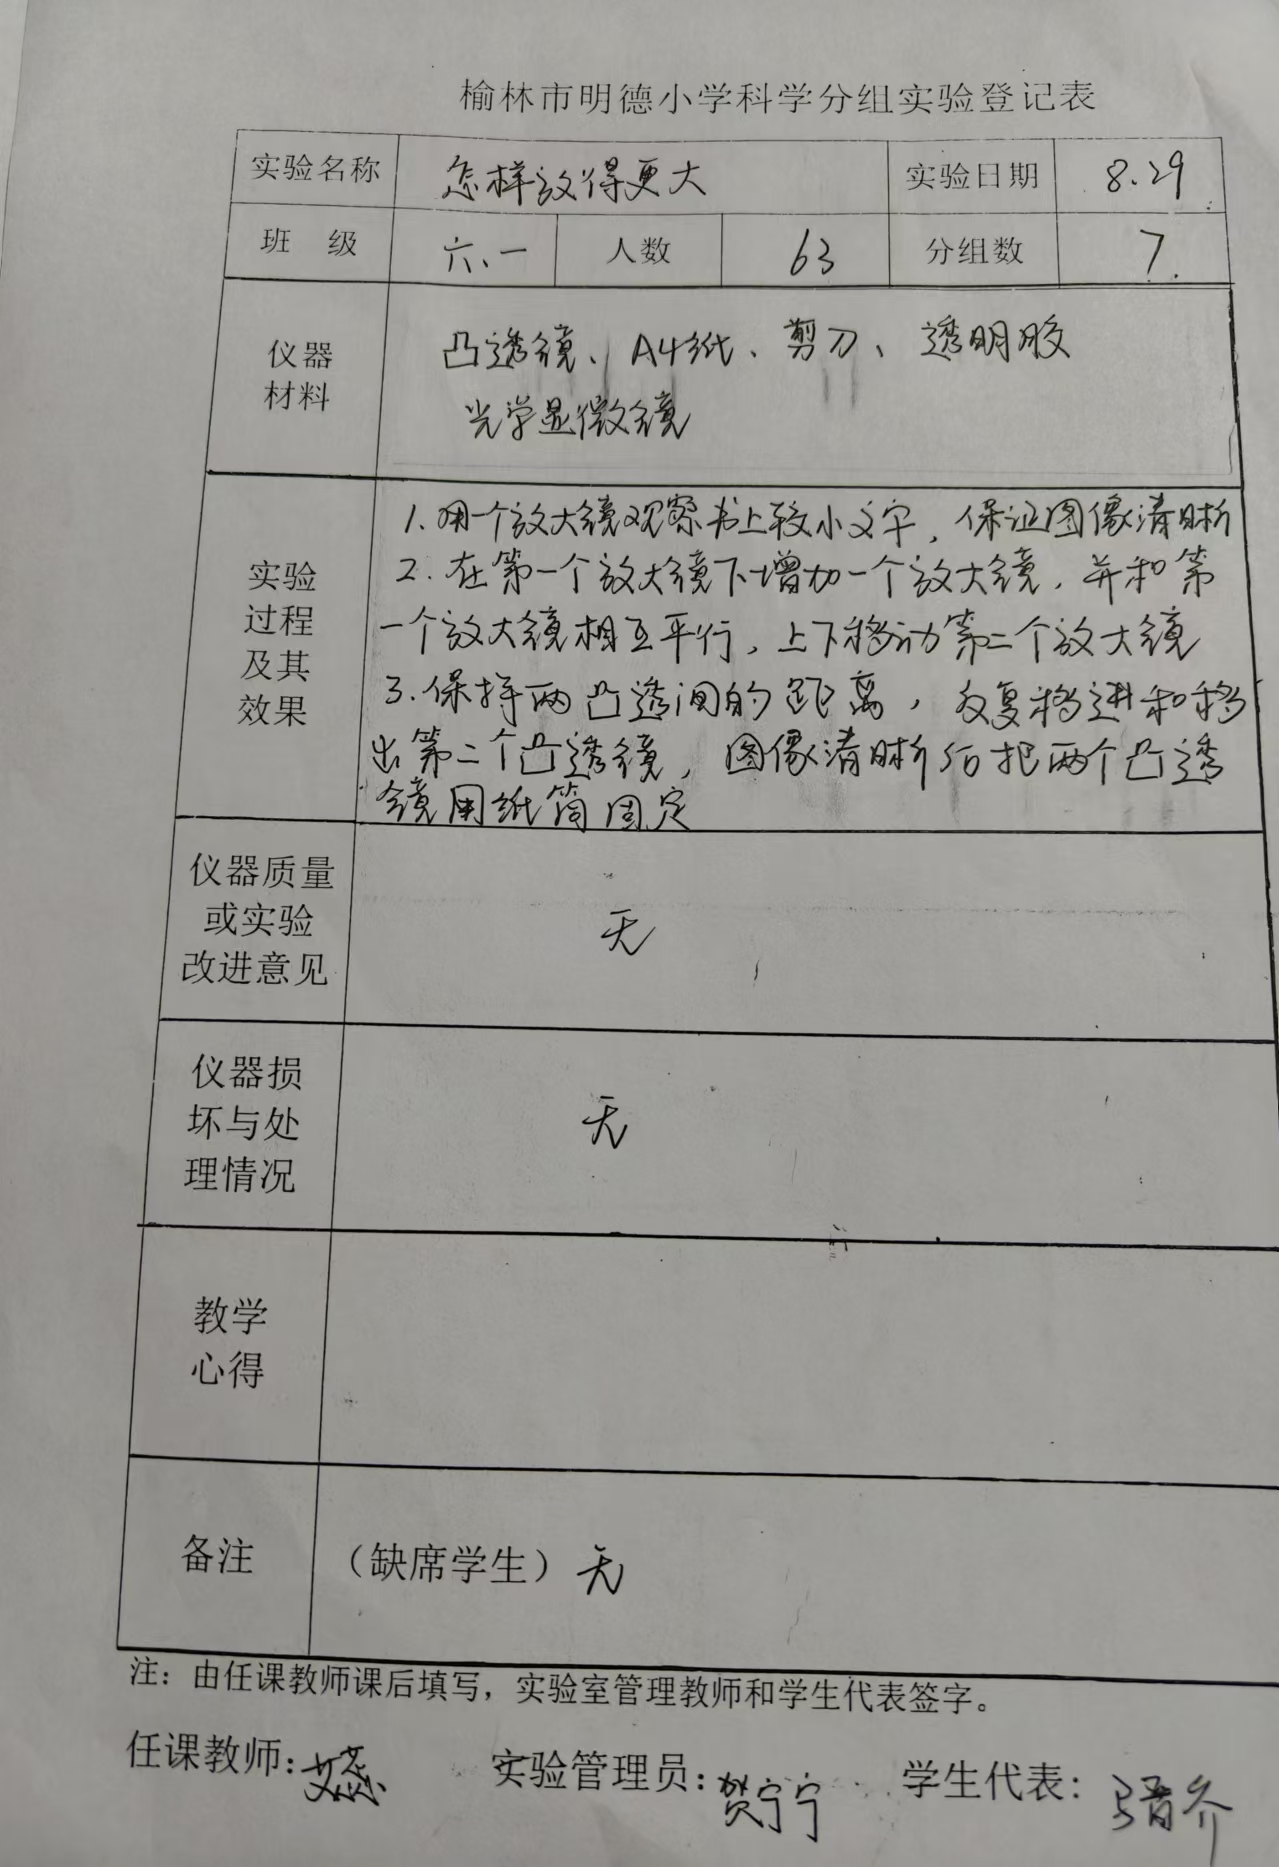 榆林市明德小学科学分组实验登记表
实验名称 怎样放得更大 实验日期 8.29
班 级 六、一 人数 63 分组数 7.
仪器
材料
凸透镜、A4纸、剪刀、透明胶
光学显微镜
实验
过程
及其
效果
1.用一个放大镜观察书上较小文字,保证图像清晰
2.在第一个放大镜下增加一个放大镜,并和第
一个放大镜相互平行,上下移动第二个放大镜
3.保持两凸透间的距离,反复移进和移
出第二个凸透镜,图像清晰后把两个凸透
镜用纸筒固定
仪器质量
或实验
改进意见
无
仪器损
坏与处
理情况
无
教学
心得
备注 (缺席学生)无
注:由任课教师课后填写,实验室管理教师和学生代表签字。
任课教师: 实验管理员:贺宁宁 学生代表: